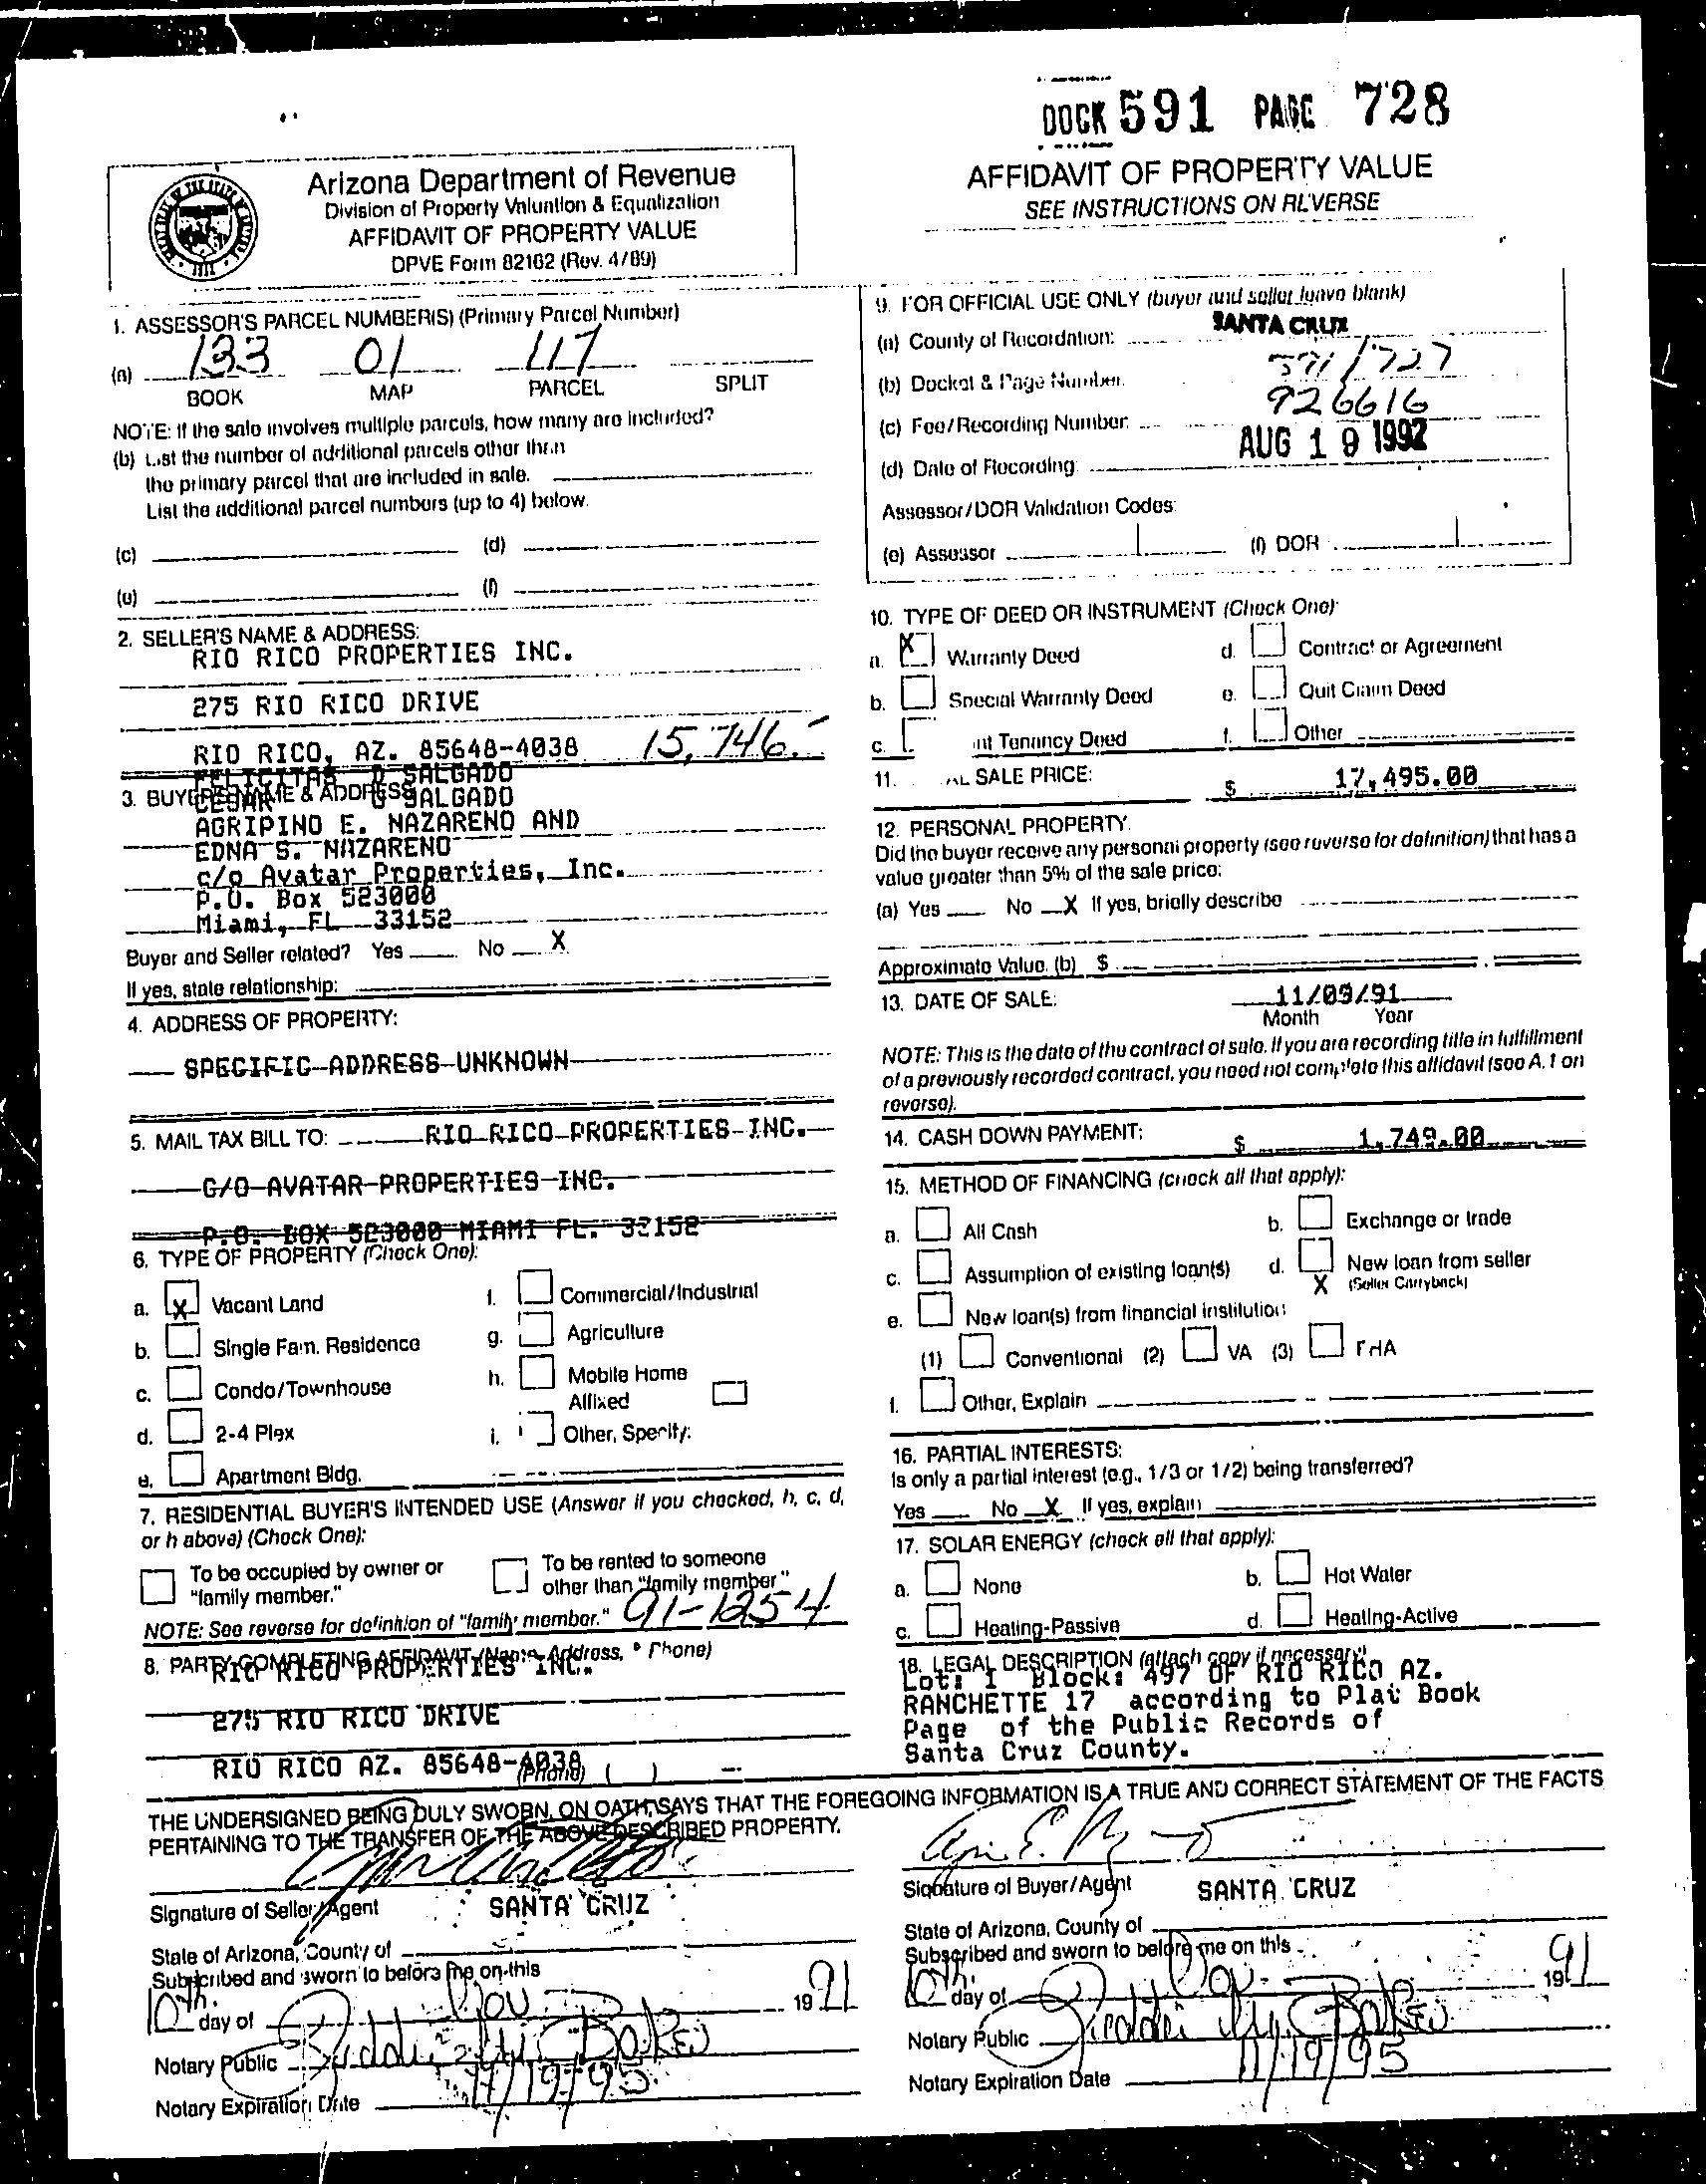 DOCK 591 PAGE 728
Arizona Department of Revenue
Division of Property Valuation & Equalization
AFFIDAVIT OF PROPERTY VALUE
DPVE Form 82162 (Rev. 4/89)
AFFIDAVIT OF PROPERTY VALUE
SEE INSTRUCTIONS ON REVERSE
1. ASSESSOR'S PARCEL NUMBER(S) (Primary Parcel Number)
(a) 133 01 117
BOOK MAP PARCEL SPLIT
NOTE: If the sale involves multiple parcels, how many are included?
(b) List the number of additional parcels other than
the primary parcel that are included in sale.
List the additional parcel numbers (up to 4) below.
(c) (d)
(e) (f)
2. SELLER'S NAME & ADDRESS:
RIO RICO PROPERTIES INC.
275 RIO RICO DRIVE
RIO RICO, AZ. 85648-4038 15,746.-
FELICITAS D SALGADO
3. BUYER'S NAME & ADDRESS
CESAR G SALGADO
AGRIPINO E. NAZARENO AND
EDNA S. NAZARENO
c/o Avatar Properties, Inc.
P.O. Box 523000
Miami, FL 33152
Buyer and Seller related? Yes No X
If yes, state relationship:
4. ADDRESS OF PROPERTY:
SPECIFIC ADDRESS UNKNOWN
5. MAIL TAX BILL TO: RIO RICO PROPERTIES INC.
C/O AVATAR PROPERTIES INC.
P.O. BOX 523000 MIAMI FL. 32152
6. TYPE OF PROPERTY (Check One):
a. X Vacant Land f. Commercial/Industrial
b. Single Fam. Residence g. Agriculture
c. Condo/Townhouse h. Mobile Home
Affixed
d. 2-4 Plex i. Other, Specify:
e. Apartment Bldg.
7. RESIDENTIAL BUYER'S INTENDED USE (Answer if you checked, h, c, d,
or h above) (Check One):
To be occupied by owner or
"family member."
To be rented to someone
other than "family member"
NOTE: See reverse for definition of "family member." 91-1254
8. PARTY COMPLETING AFFIDAVIT (Name, Address, Phone)
RIO RICO PROPERTIES INC.
275 RIO RICO DRIVE
RIO RICO AZ. 85648-4038
(Phone) ( ) -
9. FOR OFFICIAL USE ONLY (buyer and seller leave blank)
(a) County of Recordation: SANTA CRUZ
(b) Docket & Page Number: 591/727
(c) Fee/Recording Number: 926616
(d) Date of Recording: AUG 19 1992
Assessor/DOR Validation Codes:
(e) Assessor (f) DOR
10. TYPE OF DEED OR INSTRUMENT (Check One):
a. X Warranty Deed d. Contract or Agreement
b. Special Warranty Deed e. Quit Claim Deed
c. nt Tenancy Deed f. Other
11. AL SALE PRICE: $ 17,495.00
12. PERSONAL PROPERTY.
Did the buyer receive any personal property (see reverse for definition) that has a
value greater than 5% of the sale price:
(a) Yes No X If yes, briefly describe
Approximate Value. (b) $
13. DATE OF SALE: 11/09/91
Month Year
NOTE: This is the date of the contract of sale. If you are recording title in fulfillment
of a previously recorded contract, you need not complete this affidavit (see A. 1 on
reverse).
14. CASH DOWN PAYMENT: $ 1,749.00
15. METHOD OF FINANCING (check all that apply):
a. All Cash b. Exchange or trade
c. Assumption of existing loan(s) d. X New loan from seller
(Seller Carryback)
e. New loan(s) from financial institution:
(1) Conventional (2) VA (3) FHA
f. Other, Explain
16. PARTIAL INTERESTS:
Is only a partial interest (e.g., 1/3 or 1/2) being transferred?
Yes No X If yes, explain
17. SOLAR ENERGY (check all that apply):
a. None b. Hot Water
c. Heating-Passive d. Heating-Active
18. LEGAL DESCRIPTION (attach copy if necessary)
Lot: 1 Block: 497 OF RIO RICO AZ.
RANCHETTE 17 according to Plat Book
Page of the Public Records of
Santa Cruz County.
THE UNDERSIGNED BEING DULY SWORN, ON OATH, SAYS THAT THE FOREGOING INFORMATION IS A TRUE AND CORRECT STATEMENT OF THE FACTS
PERTAINING TO THE TRANSFER OF THE ABOVE DESCRIBED PROPERTY.
Signature of Seller/Agent
State of Arizona, County of SANTA CRUZ
Subscribed and sworn to before me on this
10th. day of Nov 19 91
Notary Public
Notary Expiration Date 11/19/95
Signature of Buyer/Agent
State of Arizona, County of SANTA CRUZ
Subscribed and sworn to before me on this
10th. day of Nov. 19 91
Notary Public
Notary Expiration Date 11/19/95